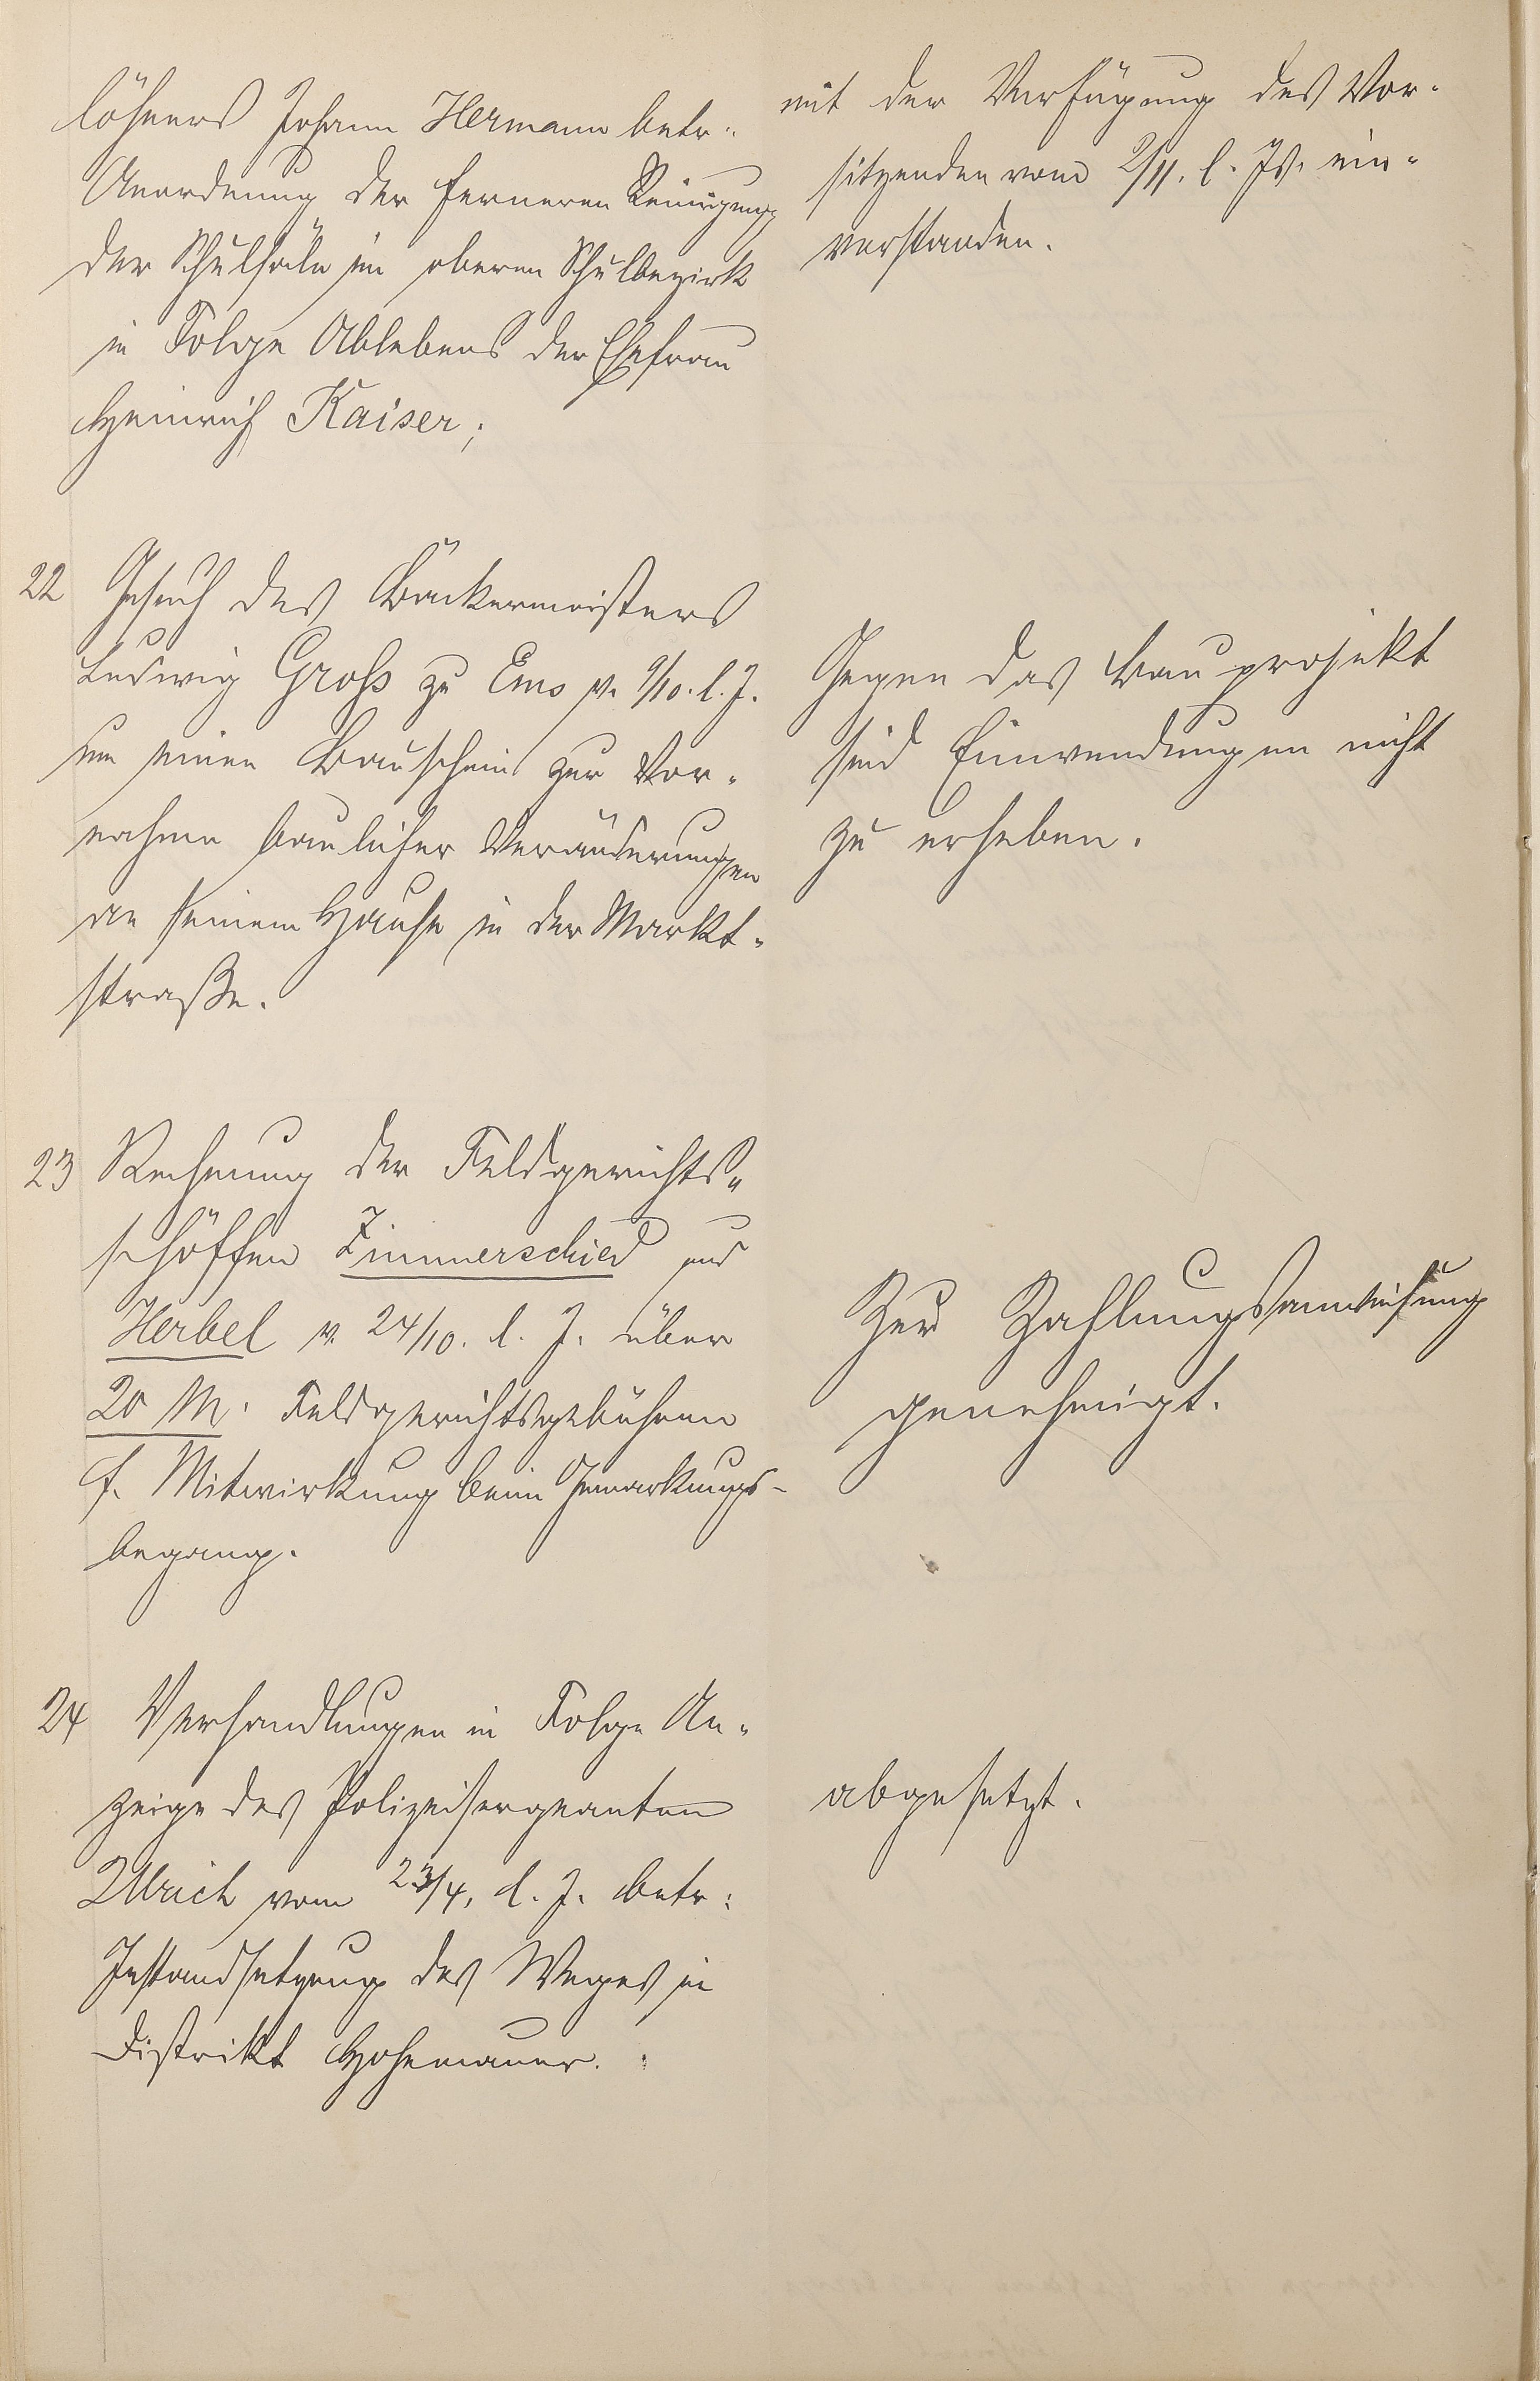 löhners Johann Hermann betr.
Anordnung der ferneren Reinigung
der Schulsäle im oberen Schulbezirk
in Folge Ablebens der Ehefrau
Heinrich Kaiser;
mit der Verfügung des Vor-
sitzenden vom 2/11. l. Js. ein-
verstanden.
22 Gesuch des Bäckermeisters
Ludwig Groß zu Ems v. 9/10. l. J.
um einen Bauschein zur Vor-
nahme baulicher Veränderungen
an seinem Hause in der Markt-
straße.
Gegen das Bauprojekt
sind Einwendungen nicht
zu erheben.
23 Rechnung der Feldgerichts-
schöffen Zimmerschied und
Herbel v. 24/10. l. J. über
20 M. Feldgerichtsgebühren
f. Mitwirkung beim Gemarkungs-
begang.
Zur Zahlungsanweisung
genehmigt.
24 Verhandlungen in Folge An-
zeige des Polizeisergeanten
Ulrich vom 23/4. l. J. betr:
Instandsetzung des Weges in
Distrikt Hohemauer.
abgesetzt.